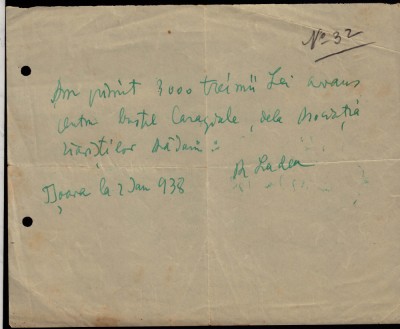 No 32
Am primit 3000 trei mii Lei avans
pentru bustul Caragiale, dela Asociația
ziariștilor
T șoara la 2 Ian 938
R Ladea